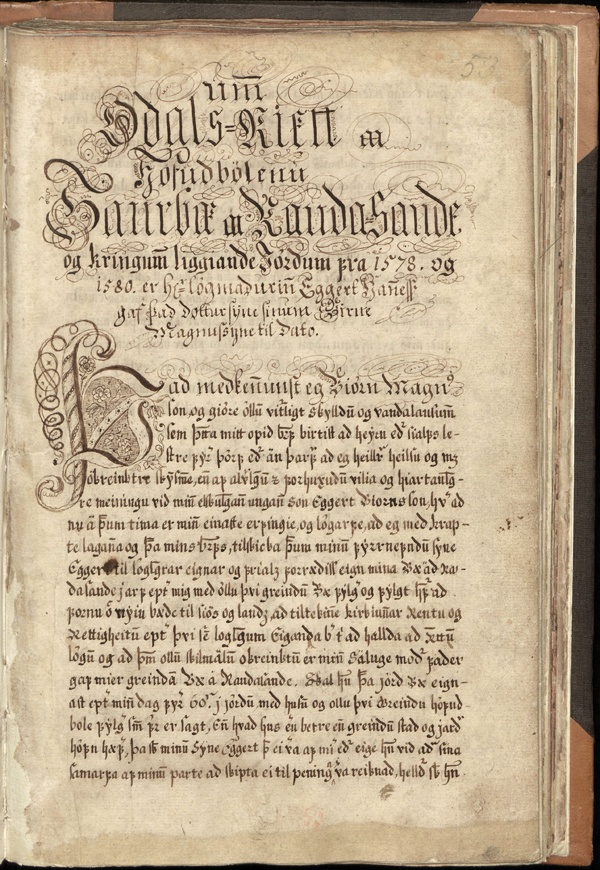 53
um̄
Odals-Riett aa
Hofudbölenu
Saurbæ aa Raudasande
og kringum̄ liggiande Jördum fra 1578. og
1580. er Hr. lögmadurin̄ Eggert Han̄ess
gaf það dottursyne sinum Birne
Magnussyne til dato.
Það medken̄unst eg Biörn Magn⁹
son, og giöre öllū vitligt skylldū og vandalausum̄
sem þetta mitt opid bref birtist ad heyra edr sialfs le-
stre fyr þörf edr än þarf ad eg heill heilsu og mz
öbreinktre skÿnsme, en̄ af alvlgū z forhuxudū vilia og hiartanlg-
re meiningu vid min̄ elskulgan̄ ungan̄ son Eggert Biorns son, hr ad
nu ä þum tima er min̄ einaste erfingie, og lögarfe, ad eg med kraf-
te lagan̄a og þa mins brefs, tilskicka þum minū fyrrnefndū syne
Eggert til loglgrar eignar og frialz forrædiss eign mina Bæ ad Ra-
dasande j arf ept mig med öllu þvi greindū Bæ fylg og fylgt hefr ad
fornu o nyiu bæde til siös og landz, ad tiltekin̄e kirkiun̄ar Rentu og
Rettigheitū ept þvi sē loglgum Eiganda ad hallda ad
lögū og ad þm̄ ollū skilmälū obreinktū er min̄ Saluge modr fader
gaf mier greindā Bæ ä Raudasande. Skal hn̄ þa jörd Bæ eign-
ast ept min̄ dag fyr 60. j jördū med husū og ollu þvi Greindū höfud-
bole fylg sm̄ fr er sagt, En̄ hvad hus eru betre en̄ greindū stad og jard
höfn hæf, þa sk minū Syne Eggert þ ei af mr edr eige hn̄ vid adra sina
samarfa af minū parte ad skipta ei til pening reiknad, helldr sk hn̄